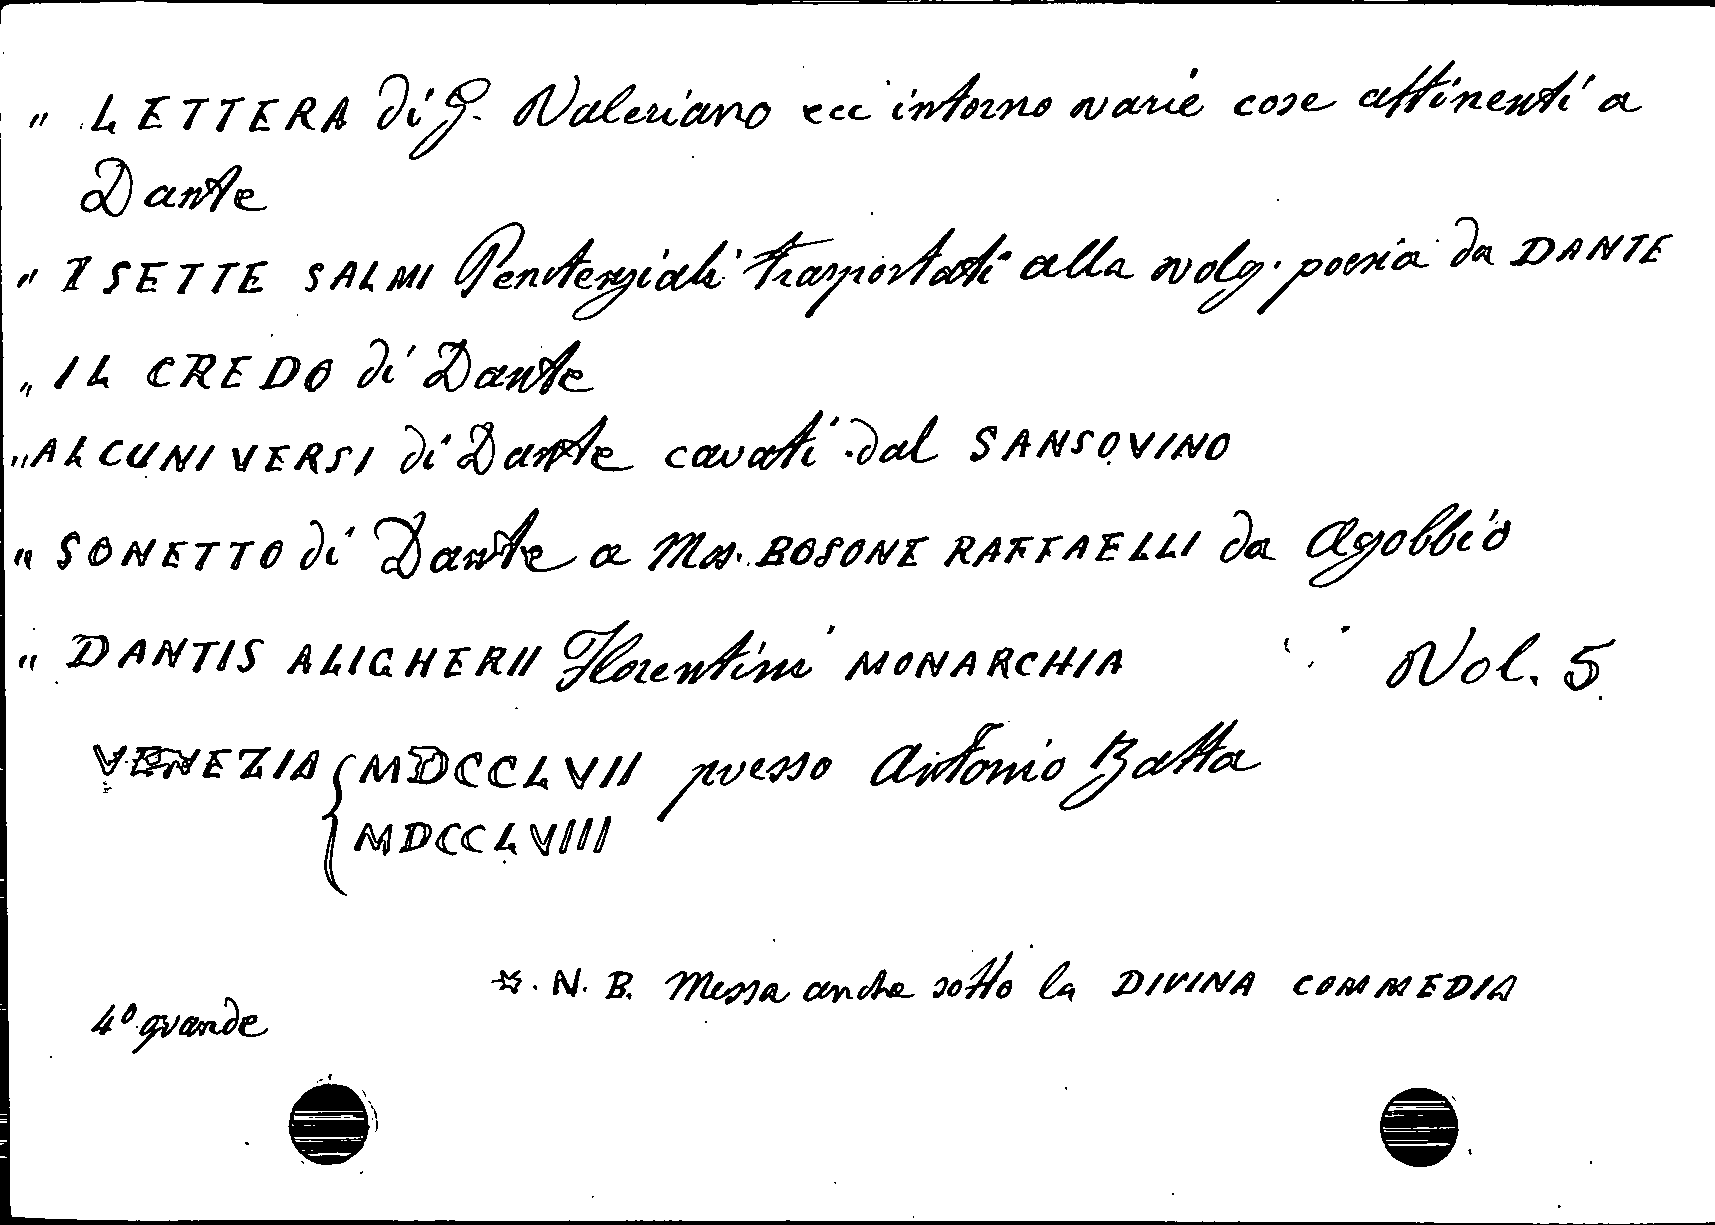 " LETTERA di G. Valeriano ecc intorno varie cose attinenti a
Dante
" I SETTE SALMI Penitenziali trasportati alla volg. poesia da DANTE
" IL CREDO di Dante
" ALCUNI VERSI di Dante cavati dal SANSOVINO
" SONETTO di Dante a Mss. BOSONE RAFFAELLI da Agobbio
" DANTIS ALIGHERII Florentini MONARCHIA Vol. 5
VENEZIA { MDCCLVII presso Antonio Zatta
MDCCLVIII
*. N. B. Messa anche sotto la DIVINA COMMEDIA
4º grande